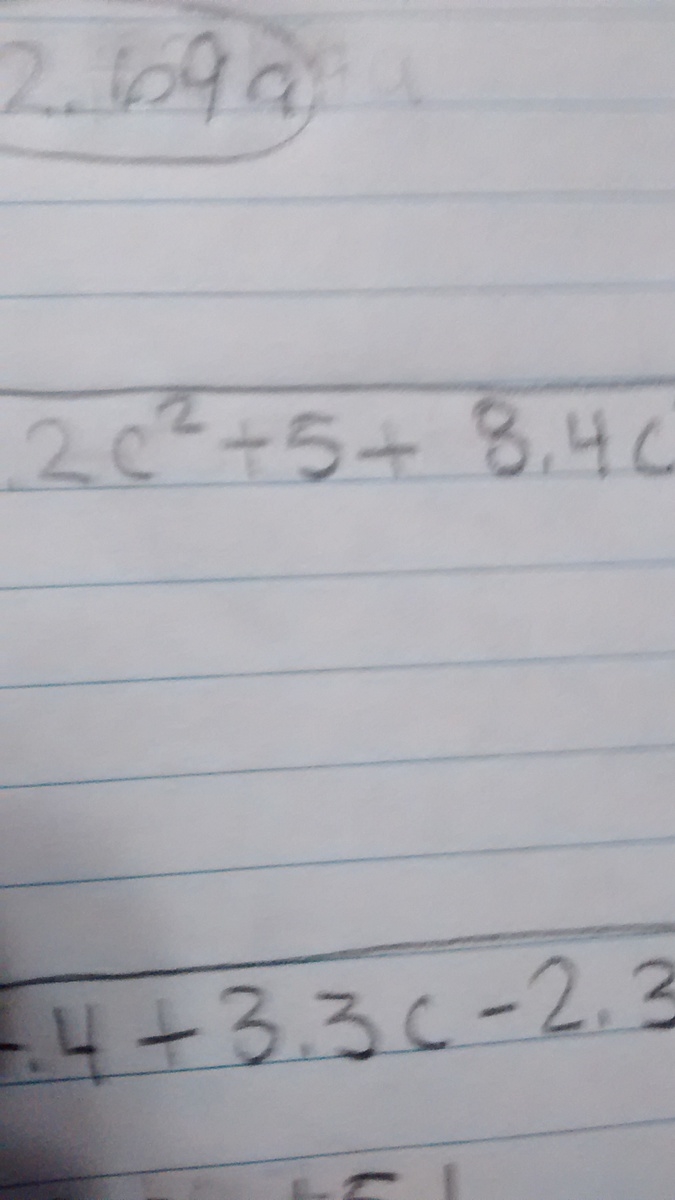 2.69a
.2c²+5+ 8.4c
.4+3.3c-2.3
+5